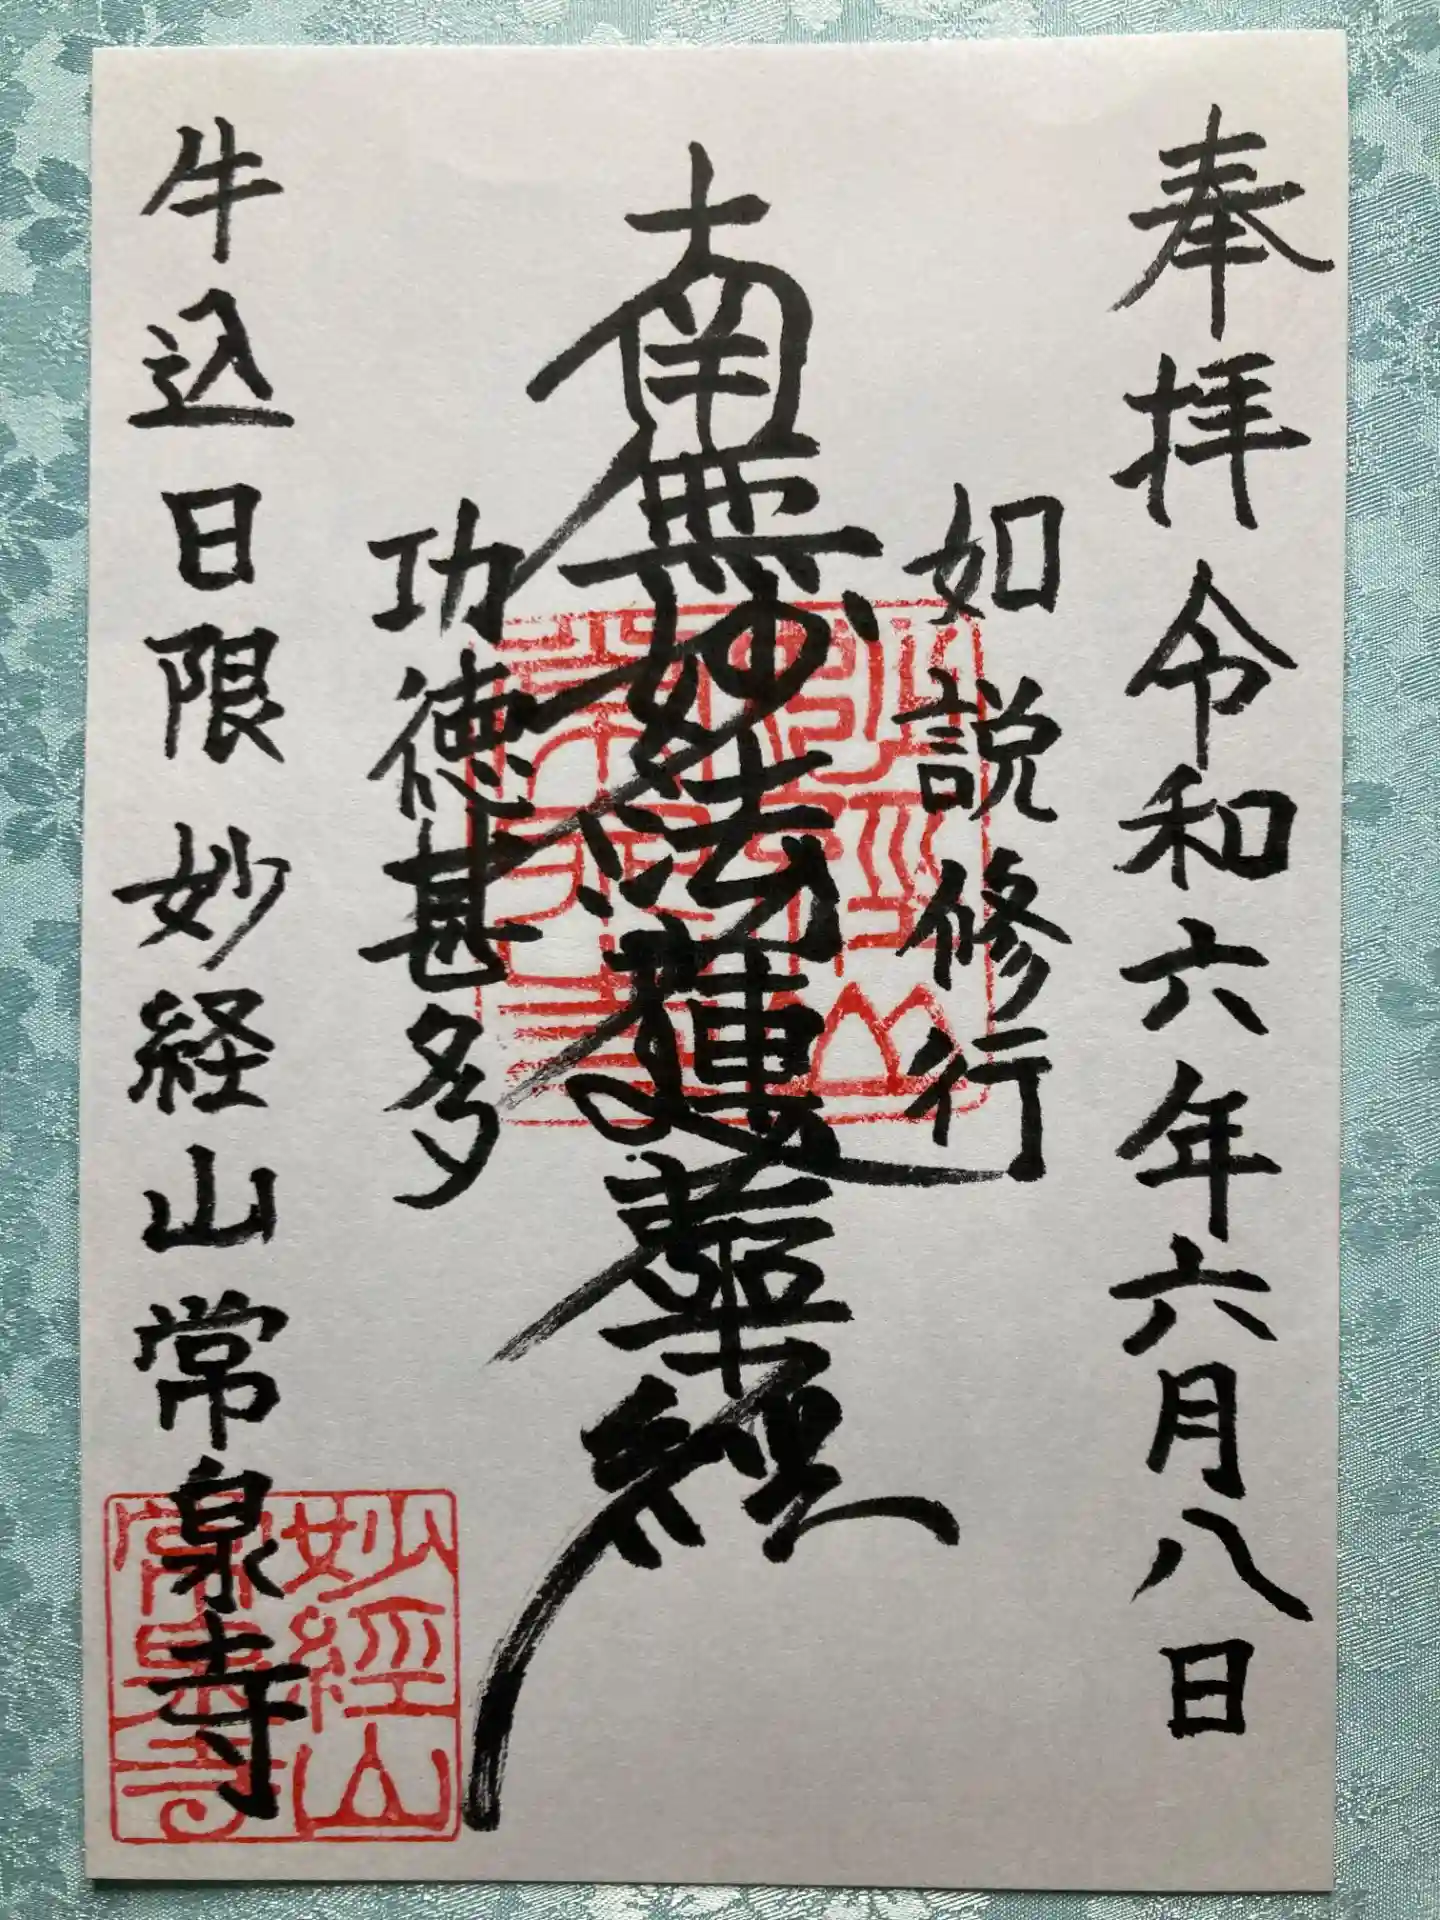 奉拝 令和六年六月八日
如説修行
南無妙法蓮華経
功徳甚多
牛込日限 妙経山常泉寺
妙經山
常泉寺